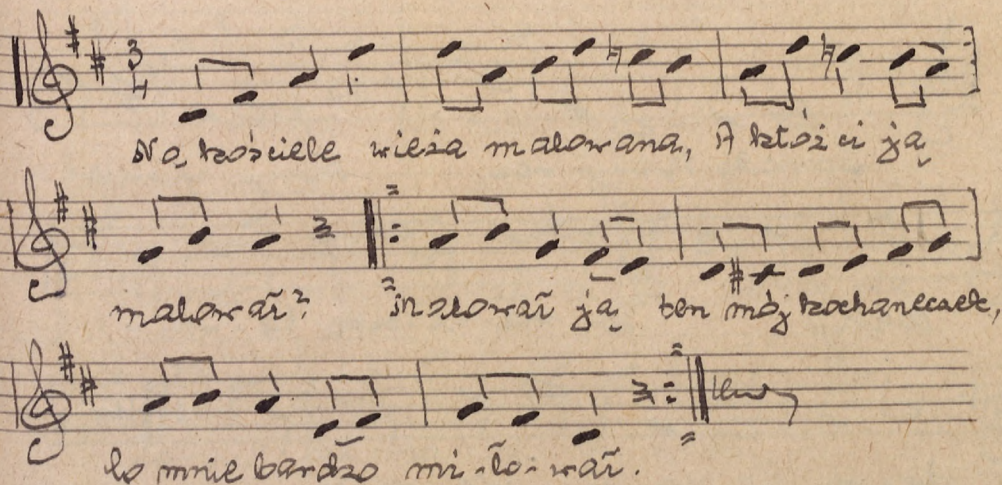 3
4
Na, kościele wieża malowana, A któż ci ją
malował? Malował ją ten mój kochaneczek,
bo mnie bardzo mi-ło-wał.